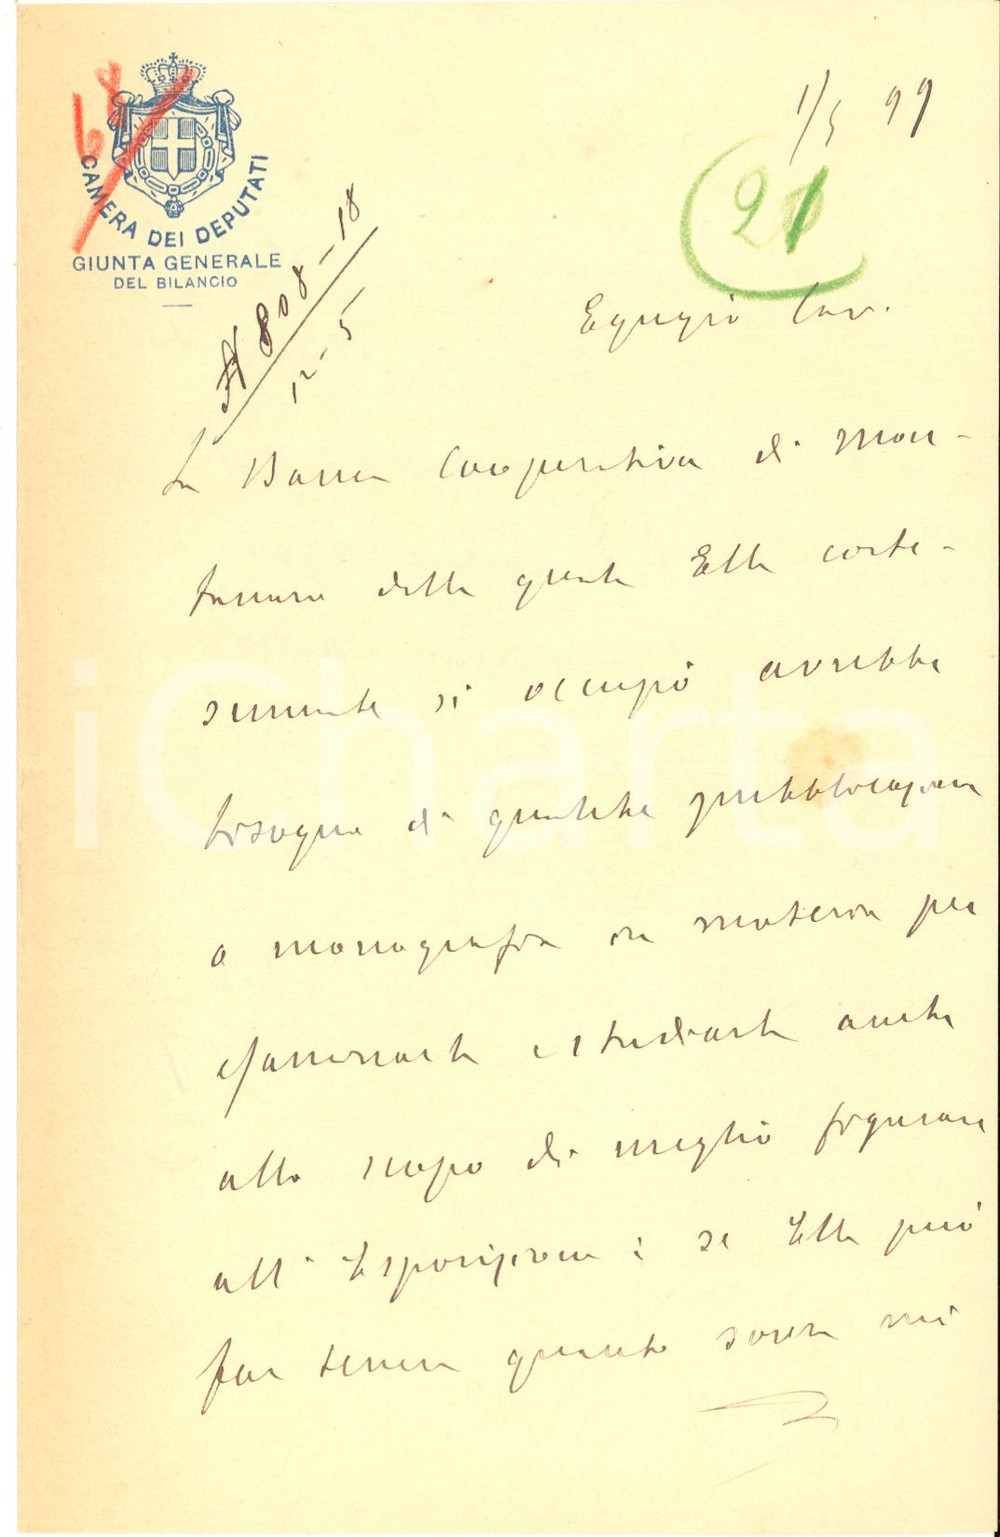 CAMERA DEI DEPUTATI
GIUNTA GENERALE
DEL BILANCIO
1/5 99
21
N 808-18
12-5
Egregio Cav.
La Banca Cooperativa di Mon-
della quale Ella corte-
semente si occupò avrebbe
bisogno di qualche pubblicazione
o monografia in materia per
esaminarla e studiarla anche
allo scopo di meglio figurare
all'Esposizione: se Ella può
far tenere quanto sovra mi
iCharta